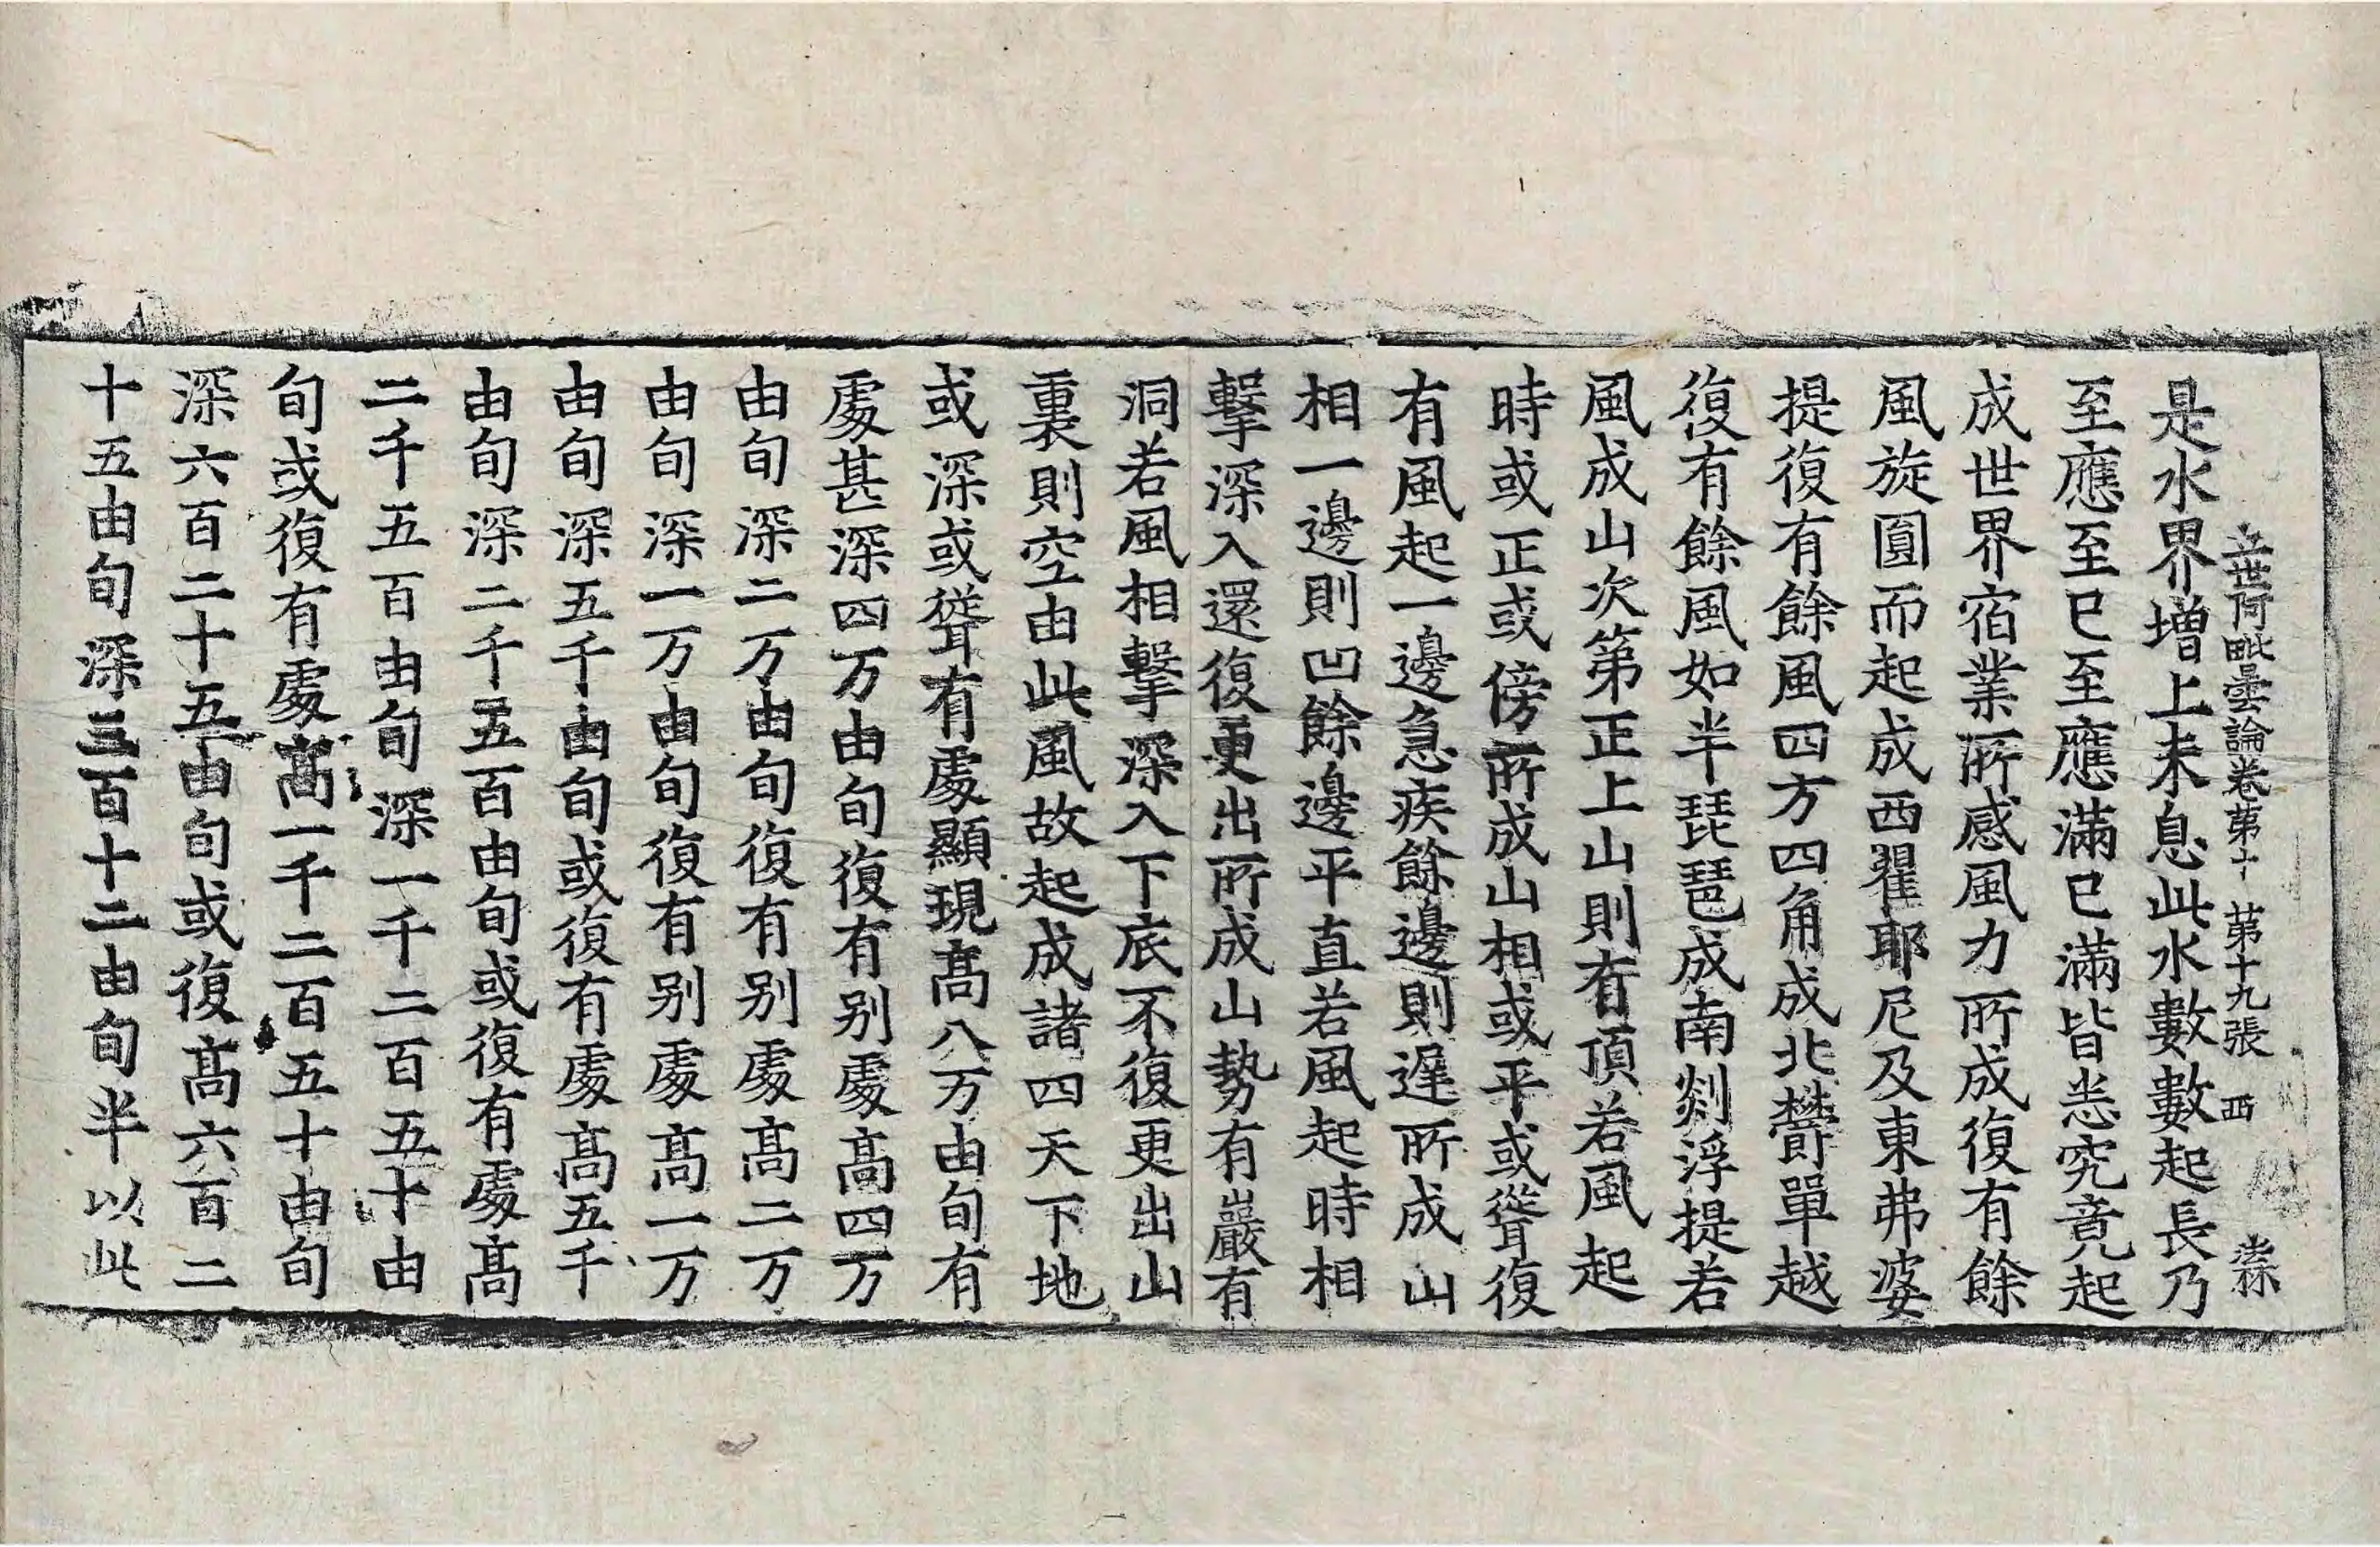 立世阿毗曇論卷第十 第十九張 西 崇
是水界增上未息此水數數起長乃
至應至已至應滿已滿皆悉究竟起
成世界宿業所感風力所成復有餘
風旋圓而起成西瞿耶尼及東弗婆
提復有餘風四方四角成北鬱單越
復有餘風如半琵琶成南剡浮提若
風成山次第正上山則有頂若風起
時或正或傍所成山相或平或聳復
有風起一邊急疾餘邊則遲所成山
相一邊則凹餘邊平直若風起時相
擊深入還復更出所成山勢有巖有
洞若風相擊深入下底不復更出山
裏則空由此風故起成諸四天下地
或深或聳有處顯現高八万由旬有
處甚深四万由旬復有別處高四万
由旬深二万由旬復有別處高二万
由旬深一万由旬復有別處高一万
由旬深五千由旬或復有處高五千
由旬深二千五百由旬或復有處高
二千五百由旬深一千二百五十由
旬或復有處高一千二百五十由旬
深六百二十五由旬或復高六百二
十五由旬深三百十二由旬半以此